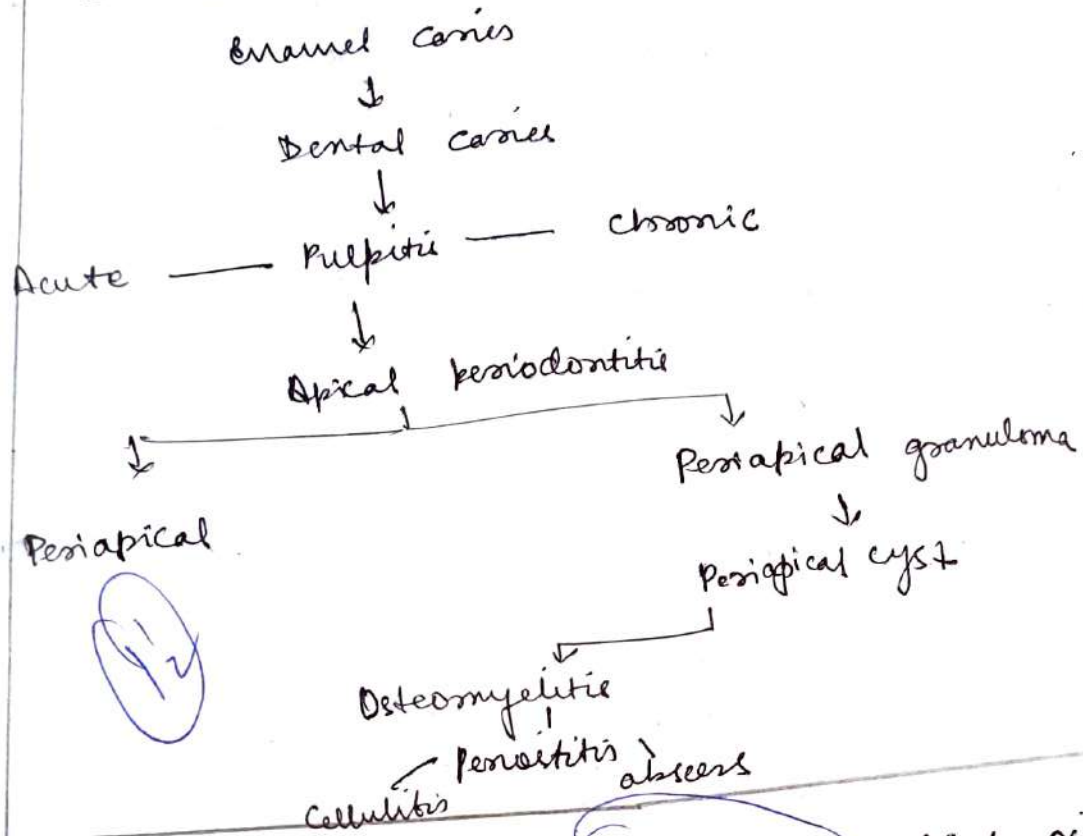 Enamel Caries
↓
Dental Caries
↓
Acute — Pulpitis — Chronic
↓
Apical Periodontitis
Periapical granuloma
Periapical
↓
Periapical cyst
Osteomyelitis
Periostitis
Cellulitis abscess